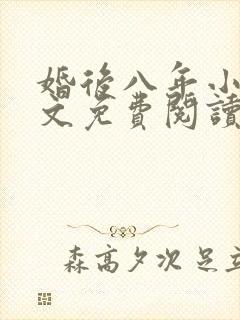 婚後八年小
文免費閱讀
森高夕次 足立